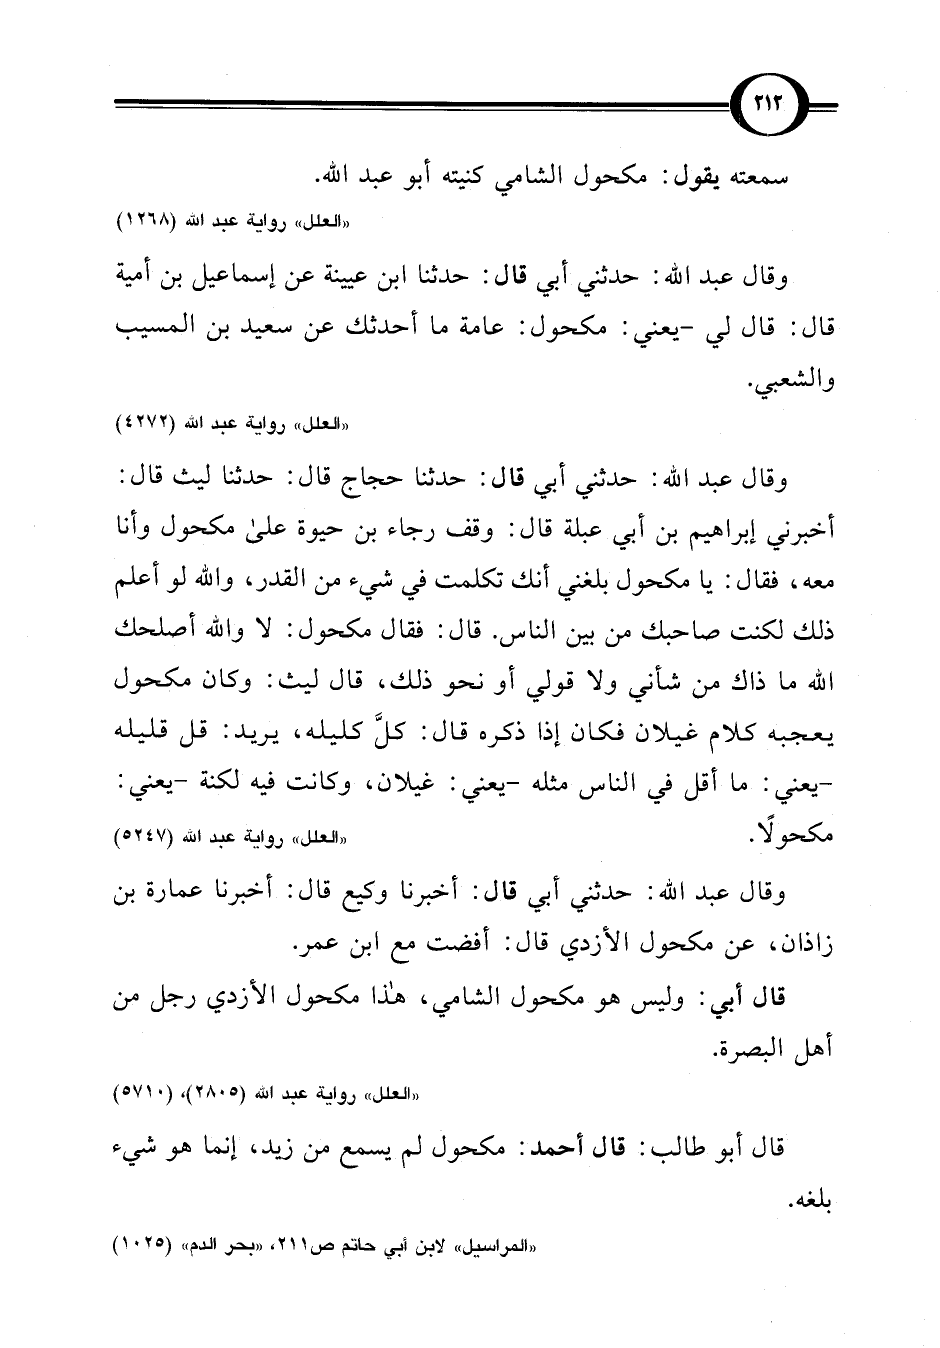 ٢١٢
سمعته يقول: مكحول الشامي كنيته أبو عبد الله.
«العلل» رواية عبد الله (١٢٦٨)
وقال عبد الله: حدثني أبي قال: حدثنا ابن عيينة عن إسماعيل بن أمية
قال: قال لي -يعني: مكحول: عامة ما أحدثك عن سعيد بن المسيب
والشعبي.
«العلل» رواية عبد الله (٤٢٧٢)
وقال عبد الله: حدثني أبي قال: حدثنا حجاج قال: حدثنا ليث قال:
أخبرني إبراهيم بن أبي عبلة قال: وقف رجاء بن حيوة علىٰ مكحول وأنا
معه، فقال: يا مكحول بلغني أنك تكلمت في شيء من القدر، والله لو أعلم
ذلك لكنت صاحبك من بين الناس. قال: فقال مكحول: لا والله أصلحك
الله ما ذاك من شأني ولا قولي أو نحو ذلك، قال ليث: وكان مكحول
يعجبه كلام غيلان فكان إذا ذكره قال: كلَّ كليله، يريد: قل قليله
-يعني: ما أقل في الناس مثله -يعني: غيلان، وكانت فيه لكنة -يعني:
مكحولًا. «العلل» رواية عبد الله (٥٢٤٧)
وقال عبد الله: حدثني أبي قال: أخبرنا وكيع قال: أخبرنا عمارة بن
زاذان، عن مكحول الأزدي قال: أفضت مع ابن عمر.
قال أبي: وليس هو مكحول الشامي، هٰذا مكحول الأزدي رجل من
أهل البصرة.
«العلل» رواية عبد الله (٢٨٠٥)، (٥٧١٠)
قال أبو طالب: قال أحمد: مكحول لم يسمع من زيد، إنما هو شيء
بلغه.
«المراسيل» لابن أبي حاتم ص٢١١، «بحر الدم» (١٠٢٥)